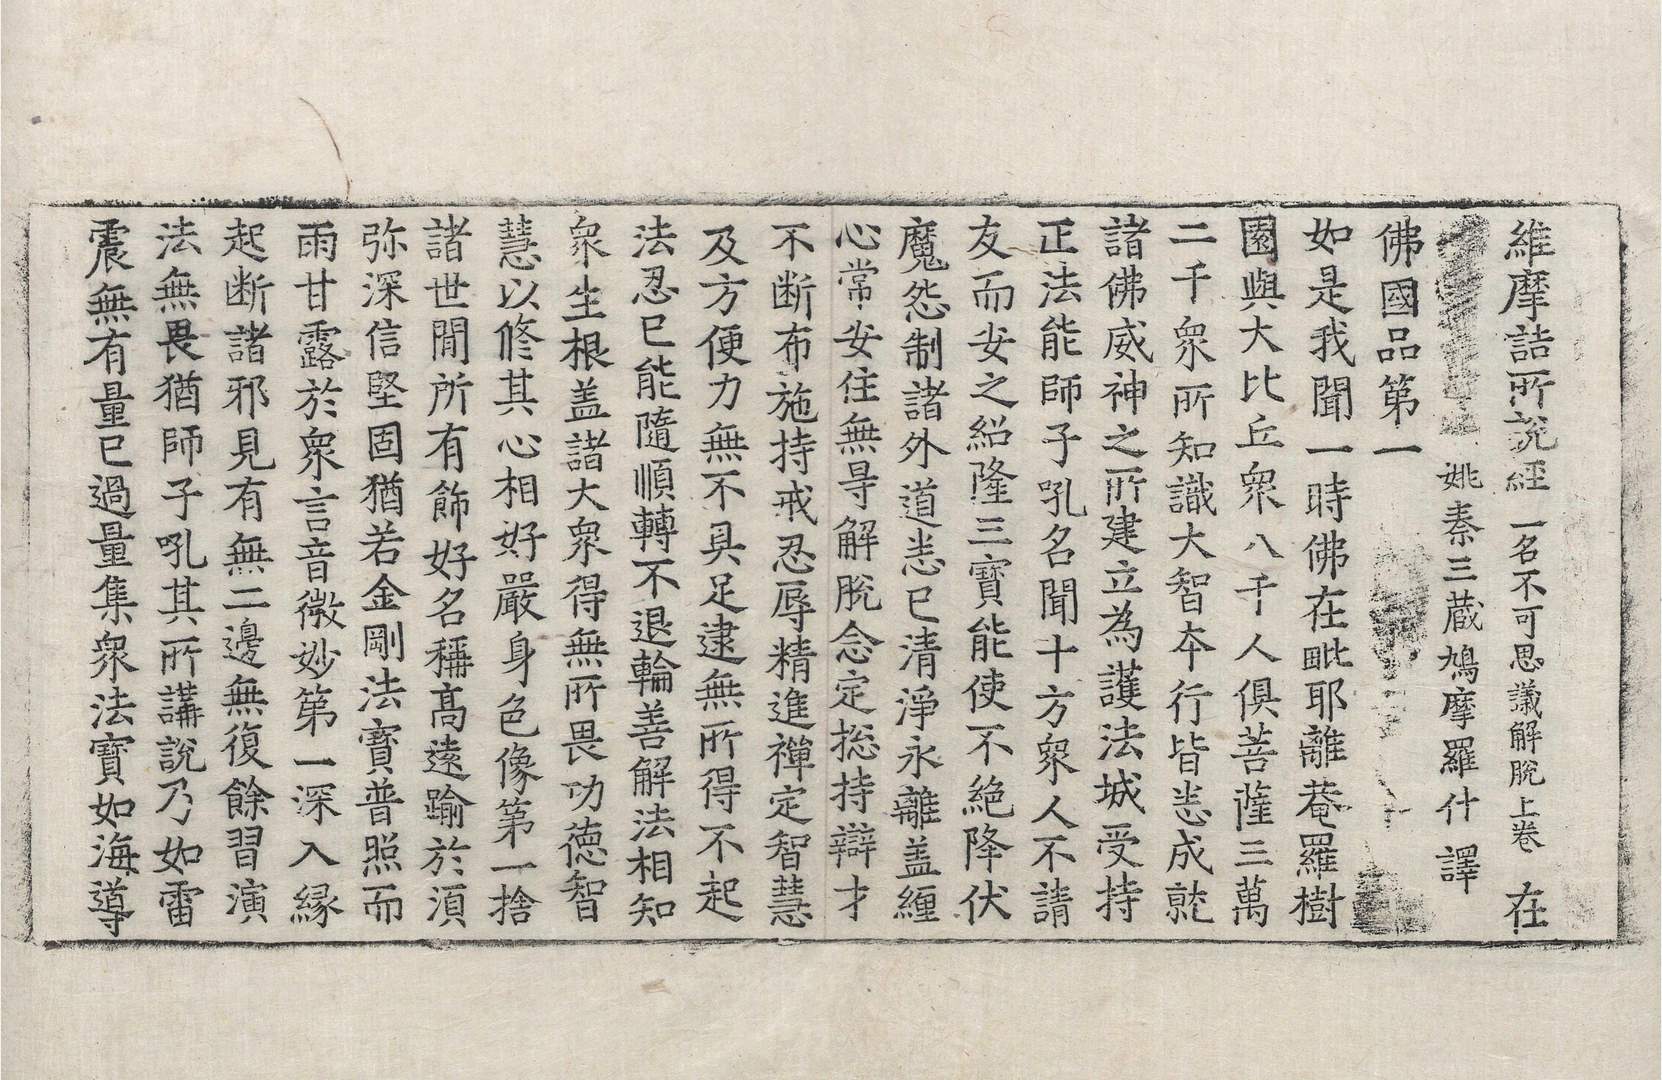 維摩詰所說經 一名不可思議解脫上卷 在
姚秦三藏鳩摩羅什 譯
佛國品第一
如是我聞一時佛在毗耶離菴羅樹
園與大比丘衆八千人俱菩薩三萬
二千衆所知識大智本行皆悉成就
諸佛威神之所建立為護法城受持
正法能師子吼名聞十方衆人不請
友而安之紹隆三寶能使不絶降伏
魔怨制諸外道悉已清淨永離盖纏
心常安住無㝵解脫念定揔持辯才
不断布施持戒忍辱精進禪定智慧
及方便力無不具足逮無所得不起
法忍已能隨順轉不退輪善解法相知
衆生根盖諸大衆得無所畏功德智
慧以修其心相好嚴身色像第一捨
諸世間所有飾好名稱高遠踰於湏
弥深信堅固猶若金剛法寶普照而
雨甘露於衆言音微妙第一深入縁
起断諸邪見有無二邊無復餘習演
法無畏猶師子吼其所講說乃如雷
震無有量已過量集衆法寶如海導